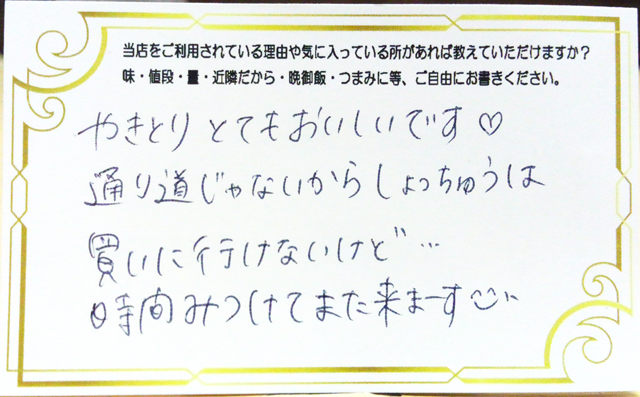 当店をご利用されている理由や気に入っている所があれば教えていただけますか?
味・値段・量・近隣だから・晩御飯・つまみに等、ご自由にお書きください。
やきとり とてもおいしいです♡
通り道じゃないからしょっちゅうは
買いに行けないけど…
時間みつけてまた来まーす